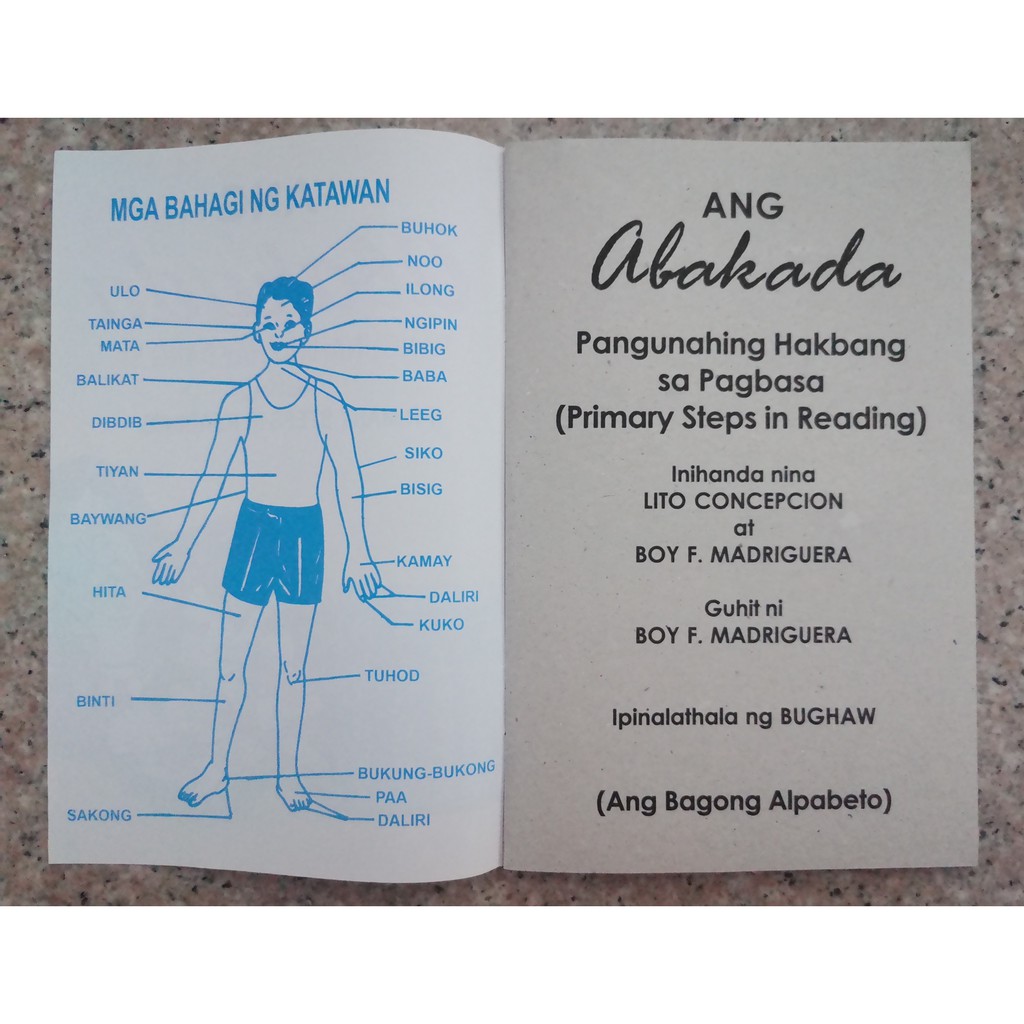 MGA BAHAGI NG KATAWAN
ULO
TAINGA
MATA
BALIKAT
DIBDIB
TIYAN
BAYWANG
HITA
BINTI
SAKONG
BUHOK
NOO
ILONG
NGIPIN
BIBIG
BABA
LEEG
SIKO
BISIG
KAMAY
DALIRI
KUKO
TUHOD
BUKUNG-BUKONG
PAA
DALIRI
ANG
Abakada
Pangunahing Hakbang
sa Pagbasa
(Primary Steps in Reading)
Inihanda nina
LITO CONCEPCION
at
BOY F. MADRIGUERA
Guhit ni
BOY F. MADRIGUERA
Ipinalathala ng BUGHAW
(Ang Bagong Alpabeto)